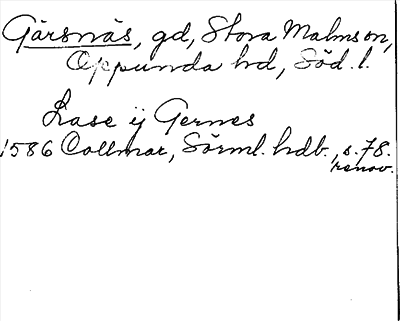 Gärsnäs, gd, Stora Malms sn,
Oppunda hd, Söd. l.
Lase ij Gernes
1586 Collmar, Sörml. hdb., s. 78.
renov.